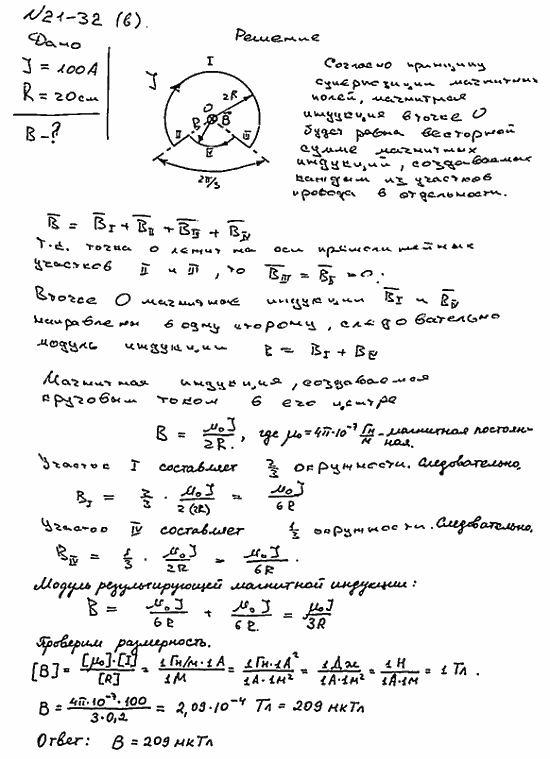 N21-32 (б).
Дано
Решение
J = 100 А
R = 20 см
B - ?
I
J
2R
O
B
R
II
III
IV
2π/3
Согласно принципу
суперпозиции магнитных
полей, магнитная
индукция в точке О
будет равна векторной
сумме магнитных
индукций, создаваемых
каждым из участков
провода в отдельности.
B̅ = B̅_I + B̅_II + B̅_III + B̅_IV
Т.к. точка О лежит на оси прямолинейных
участков II и III, то B̅_III = B̅_II = 0.
В точке О магнитные индукции B̅_I и B̅_IV
направлены в одну сторону, следовательно
модуль индукции B = B_I + B_IV
Магнитная индукция, создаваемая
круговым током в его центре
B = μ₀J / 2R, где μ₀ = 4π·10⁻⁷ Гн/м - магнитная постоянная.
Участок I составляет 2/3 окружности. Следовательно,
B_I = 2/3 · μ₀J / 2(2R) = μ₀J / 6R
Участок IV составляет 1/3 окружности. Следовательно,
B_IV = 1/3 · μ₀J / 2R = μ₀J / 6R.
Модуль результирующей магнитной индукции:
B = μ₀J / 6R + μ₀J / 6R = μ₀J / 3R
Проверим размерность.
[B] = [μ₀]·[J] / [R] = 1Гн/м·1А / 1м = 1Гн·1А² / 1А·1м² = 1Дж / 1А·1м² = 1Н / 1А·1м = 1Тл.
B = 4π·10⁻⁷·100 / 3·0,2 = 2,09·10⁻⁴ Тл = 209 мкТл
Ответ: B = 209 мкТл